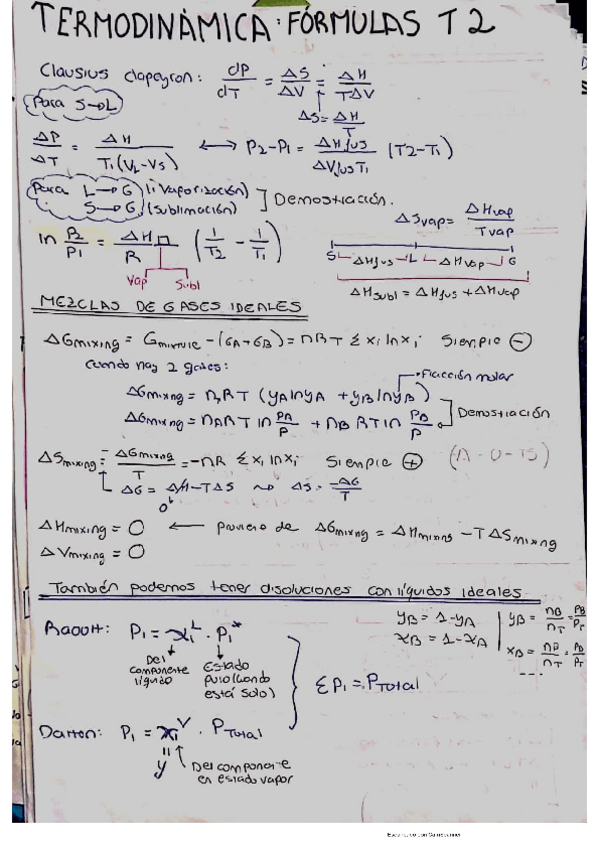 TERMODINÁMICA: FÓRMULAS T2
Clausius clapeyron: dP/dT = ΔS/ΔV = ΔH/TΔV
Para S→L
ΔS = ΔH/T
ΔP/ΔT = ΔH/T₁(VL-VS) ↔ P2-P1 = ΔHfus/ΔVfusT₁ (T2-T1)
Para L→G (Vaporización)
S→G (sublimación) ] Demostración.
ΔSvap = ΔHvap/Tvap
ln P2/P1 = ΔH□/R (1/T2 - 1/T1)
Vap Subl
S ΔHfus L ΔHvap G
ΔHsubl = ΔHfus + ΔHvap
MEZCLAS DE GASES IDEALES
ΔGmixing = Gmixture - (GA+GB) = nRT Σ xi ln xi Siempre ⊖
cuando hay 2 gases:
Fracción molar
ΔGmixing = nRT (yA ln yA + yB ln yB)
ΔGmixing = nART ln PA/P + nB RT ln PB/P
Demostración
ΔSmixing = -ΔGmixing/T = -nR Σ xi ln xi Siempre ⊕ (A-U-TS)
ΔG = ΔH - TΔS ~> ΔS = -ΔG/T
0
ΔHmixing = 0 ← proviene de ΔGmixing = ΔHmixing - TΔSmixing
ΔVmixing = 0
También podemos tener disoluciones con líquidos ideales
Raoult: Pi = xiL · Pi*
yB = 1-yA
xB = 1-xA
yB = nB/nT = PB/PT
xB = nB/nT = PB/PT
Del componente líquido
Estado puro (cuando está solo)
ΣPi = PTotal
Dalton: Pi = xiV · PTotal
"
y
Del componente
en estado vapor
Escaneado con CamScanner